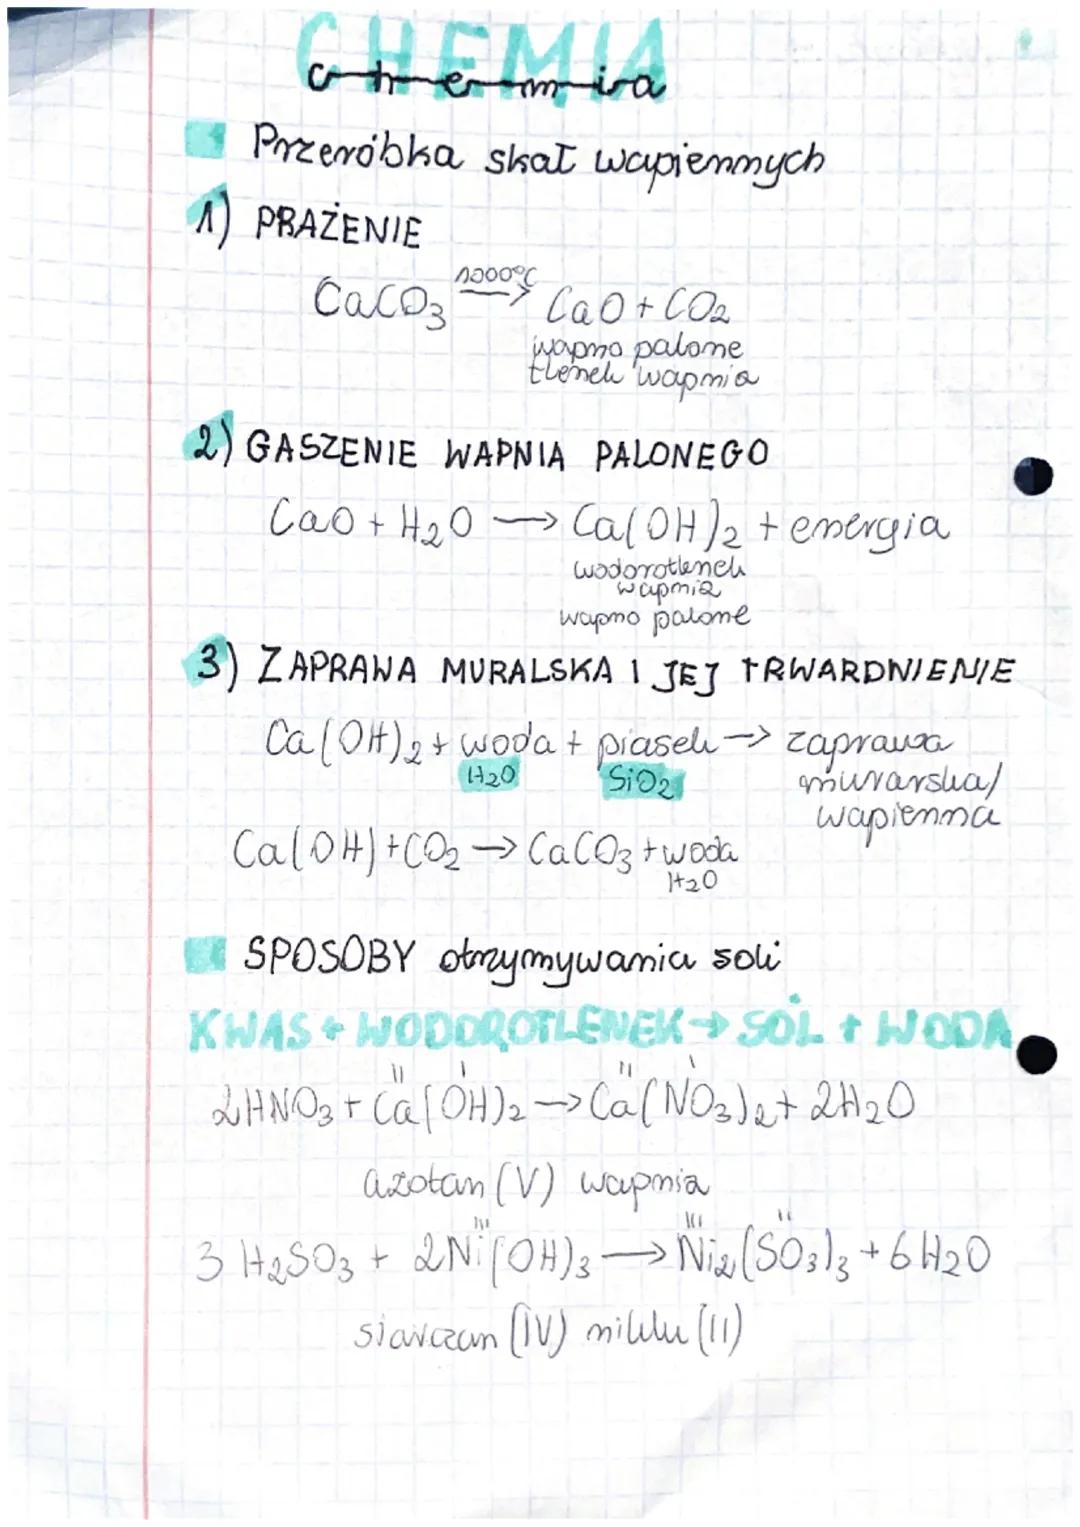 CHEMIA
chemia
Przeróbka skał wapiennych
1) PRAŻENIE
CaCO3 1000°C → CaO + CO2
wapno palone
tlenek wapnia
2) GASZENIE WAPNIA PALONEGO
CaO + H2O → Ca(OH)2 + energia
wodorotlenek
wapnia
wapno palone
3) ZAPRAWA MURALSKA I JEJ TRWARDNIENIE
Ca(OH)2 + woda + piasek → zaprawa
H2O SiO2 murarska/
wapienna
Ca(OH)+CO2 → CaCO3 + woda
H2O
SPOSOBY otrzymywania soli
KWAS + WODOROTLENEK → SÓL + WODA
II I II I
2HNO3 + Ca(OH)2 → Ca(NO3)2 + 2H2O
azotan (V) wapnia
III III II
3 H2SO3 + 2Ni(OH)3 → Ni2(SO3)3 + 6H2O
siarczan (IV) niklu (II)